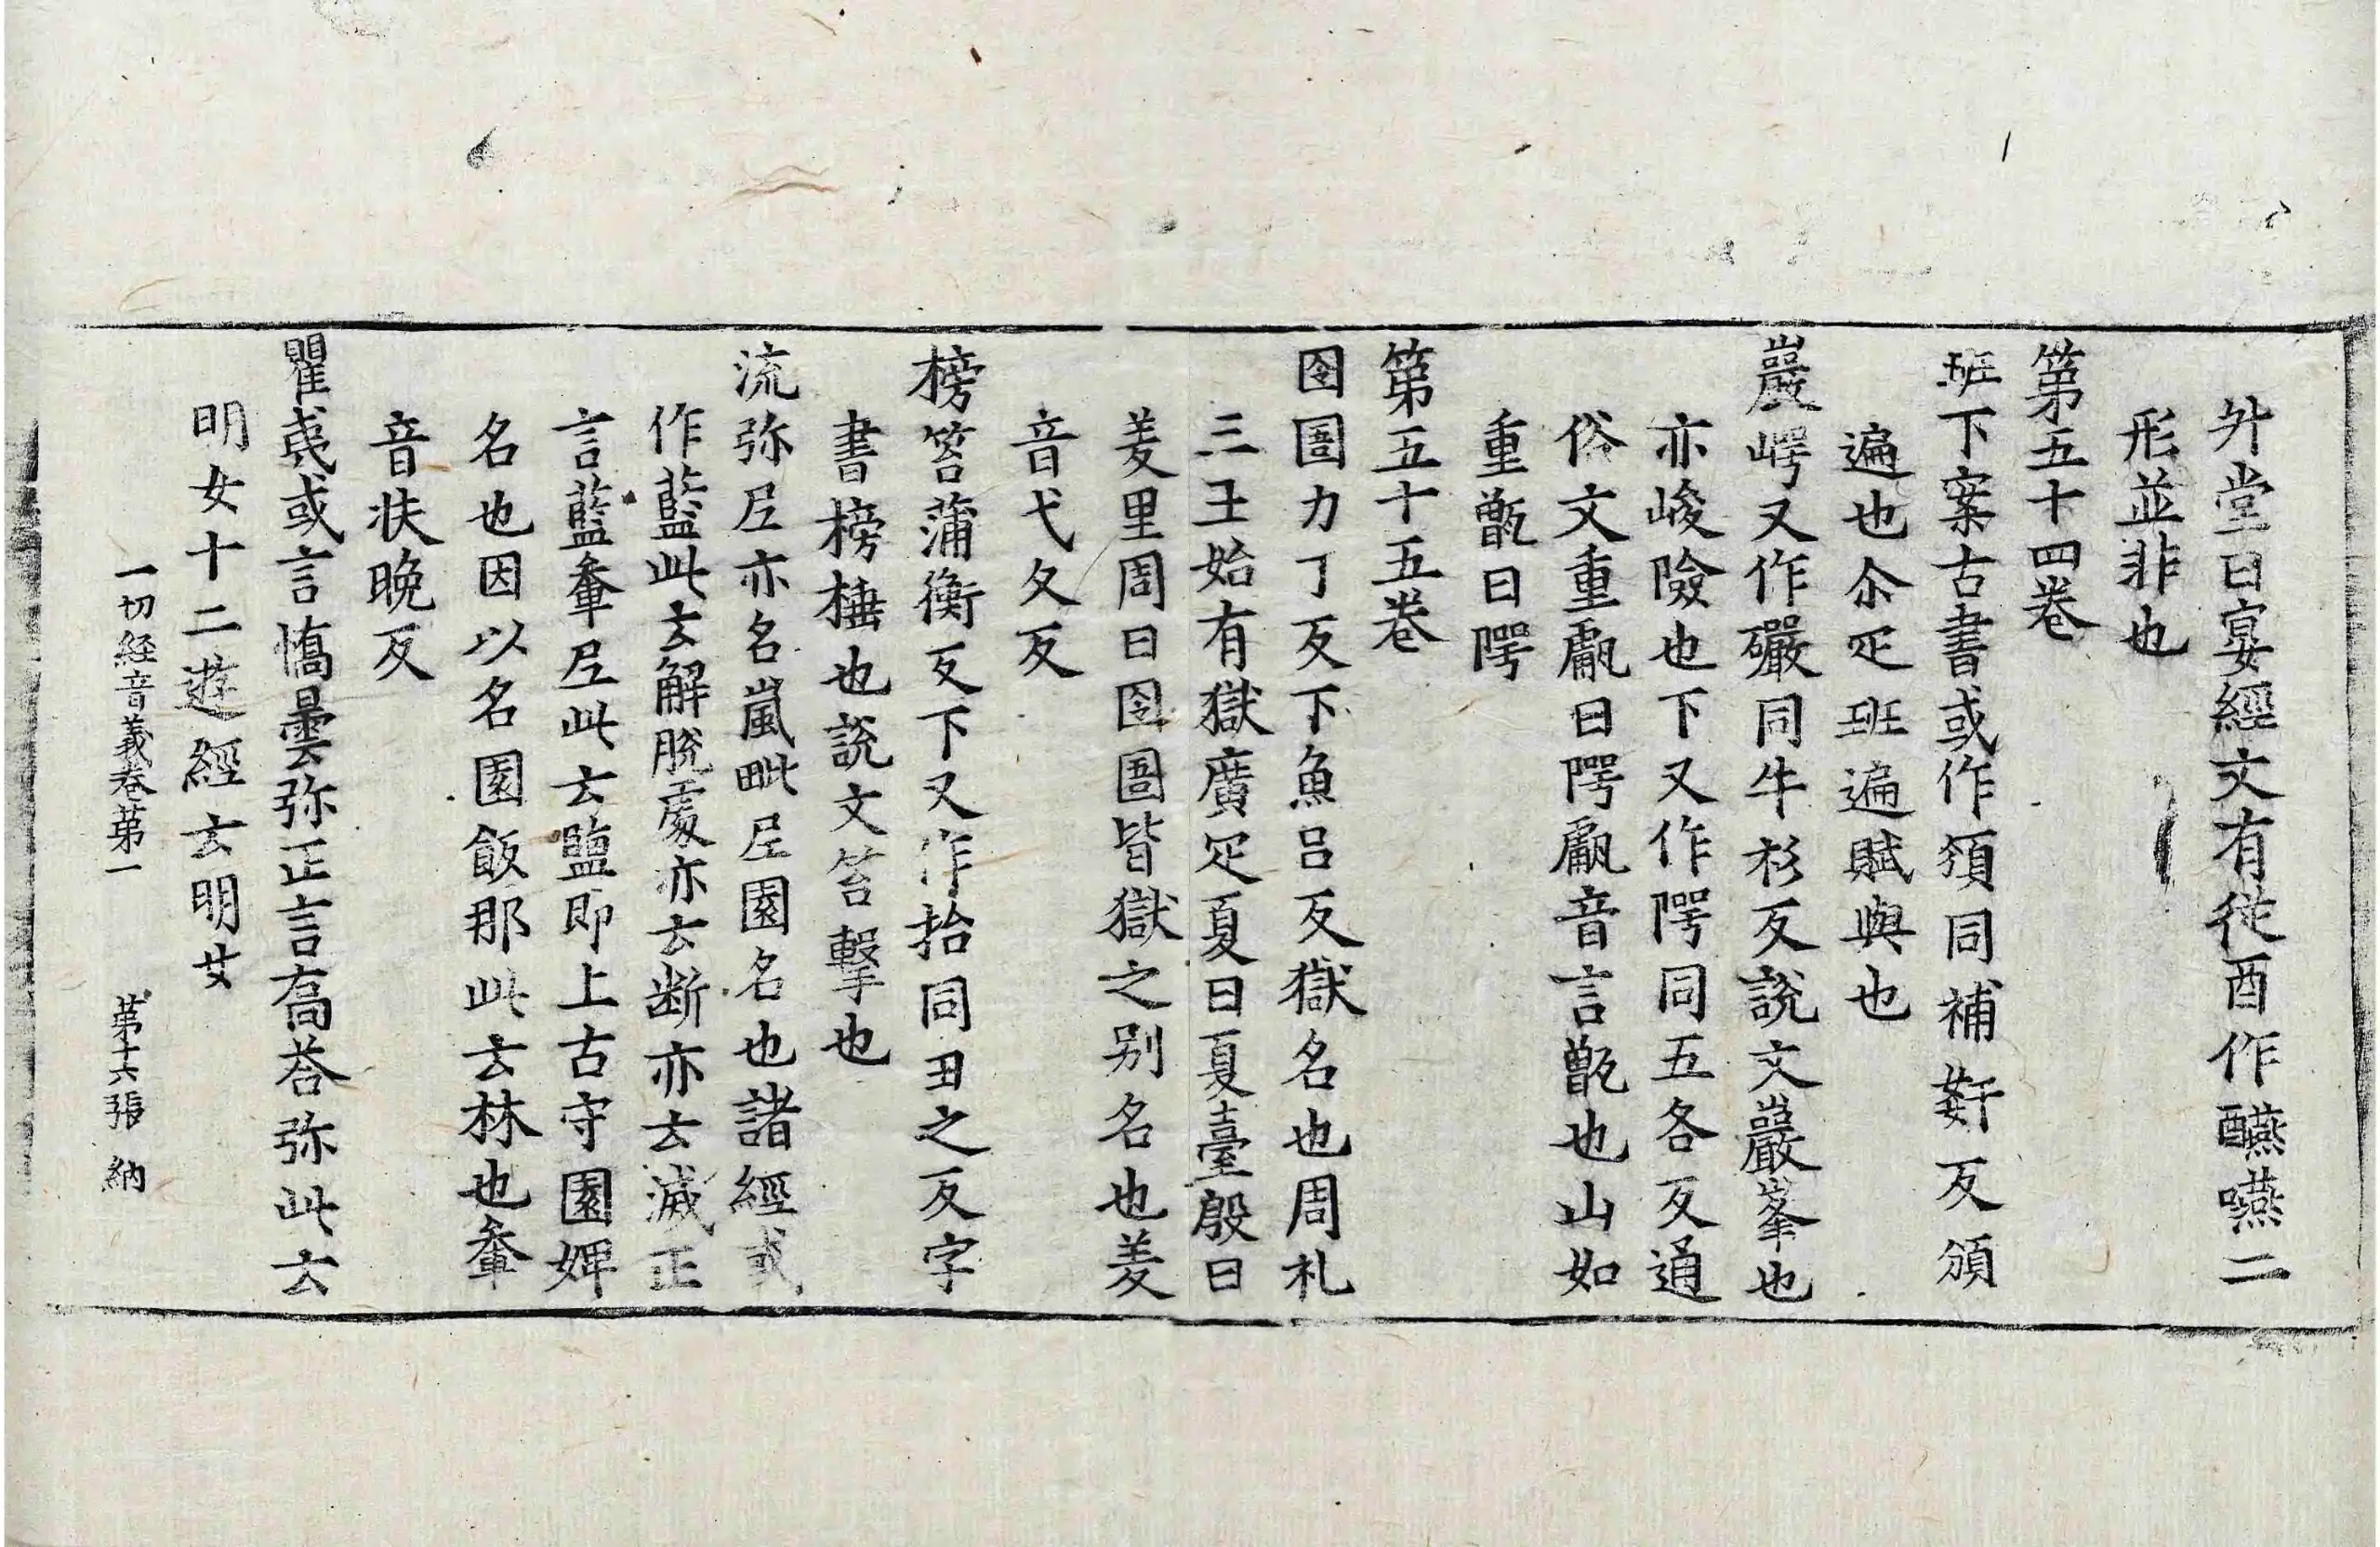 外堂曰宴經文有從酉作醼嚥二
形並非也
第五十四卷
班下案古書或作頒同補姧反頒
遍也尒疋班遍賦與也
巖㟧又作礹同牛衫反說文巖峯也
亦峻險也下又作㖾同五各反通
俗文重甗曰㖾甗音言甑也山如
重甑曰㖾
第五十五卷
囹圄力丁反下魚呂反獄名也周礼
三王始有獄廣疋夏曰夏臺殷曰
羑里周曰囹圄皆獄之别名也羑
音弋久反
榜笞蒲衡反下又作抬同丑之反字
書榜棰也說文笞擊也
流弥尼亦名嵐毗尼園名也諸經或
作藍此云解脫處亦云断亦云滅正
言藍軬尼此云鹽即上古守園婢
名也因以名園飯那此云林也軬
音扶晩反
瞿夷或言憍曇弥正言喬荅弥此云
明女十二遊經云明女
一切経音義卷第一 第十六張 納